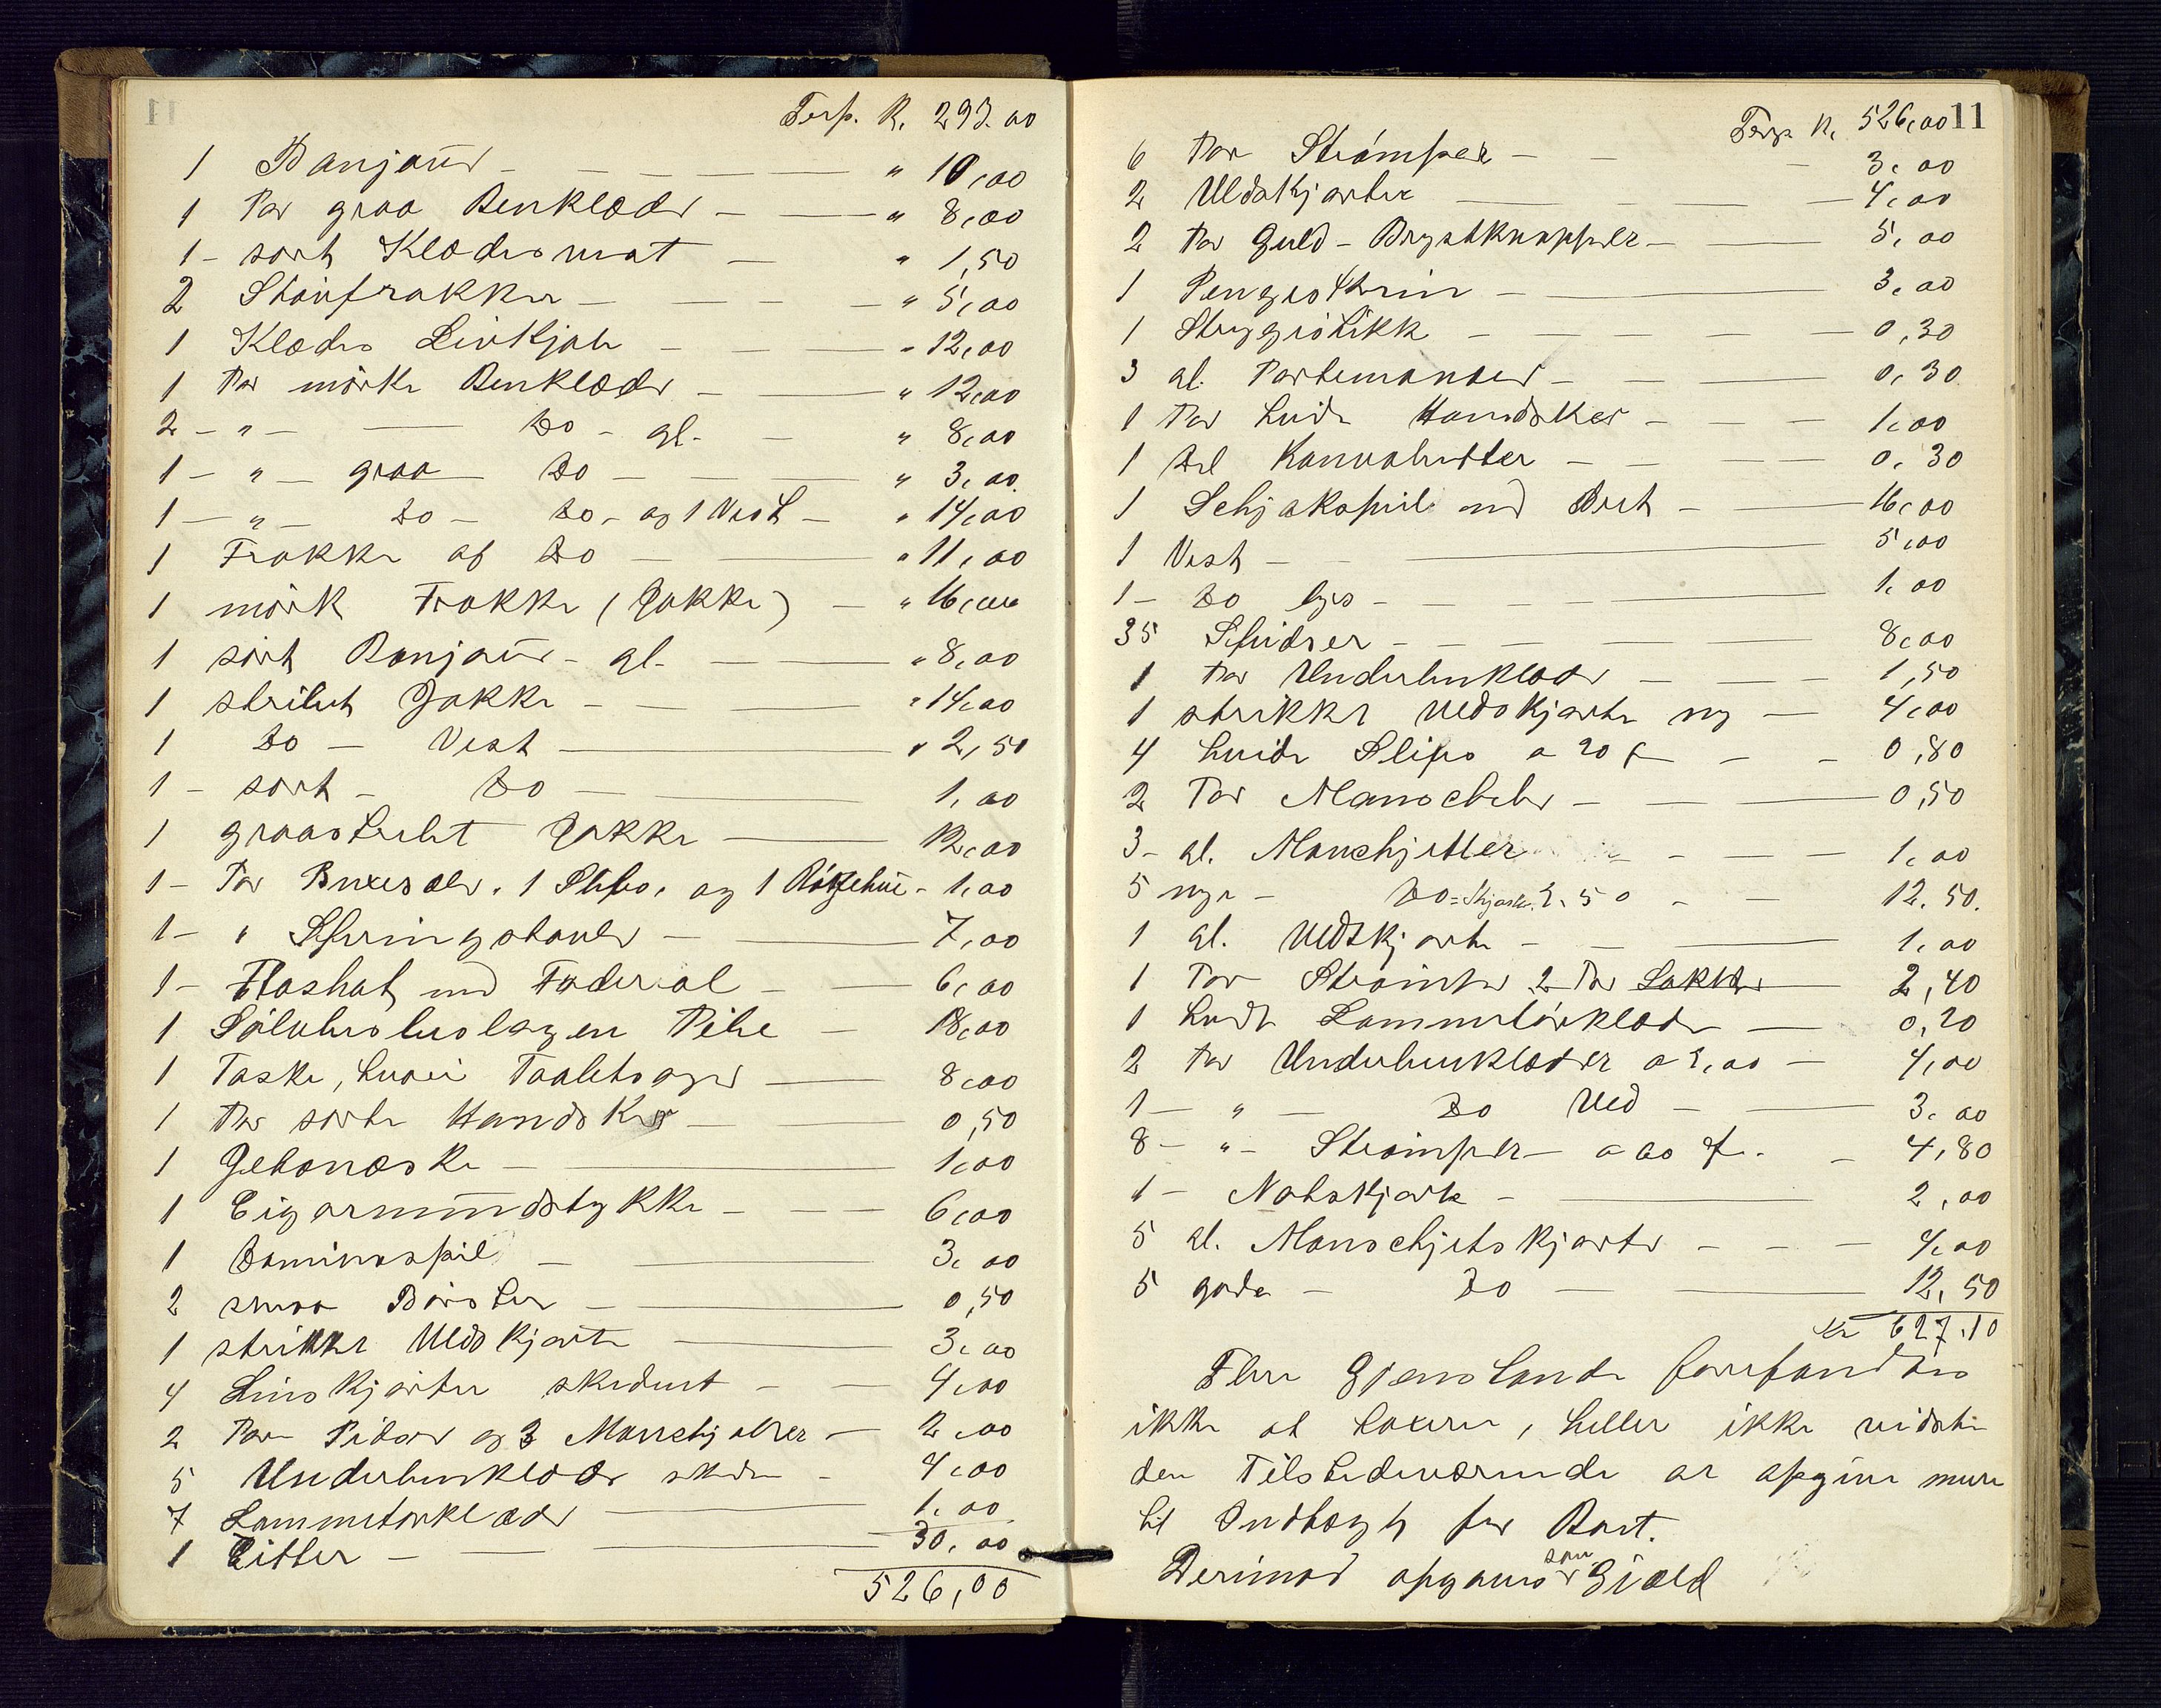 Tersp. K. 293.00
1 Bonjour - - - - " 10,00
1 Par graa Benklæder - " 8,00
1 - sort Klædesmat - " 1,50
2 Støvfrakker - - - - " 5,00
1 Klædes Livkjole - - " 12,00
1 Par mörke Benklæder - " 12,00
2 - " - Do - gl. - " 8,00
1 - " - graa Do - - " 3,00
1 - " - Do - Do - og 1 Vest - " 14,00
1 Frakke af Do - " 11,00
1 mörk Frakke (Jakke) - " 16,00
1 sort Bonjour - gl. - " 8,00
1 stribet Jakke - - " 14,00
1 Do - Vest - " 2,50
1 - sort - Do - 1,00
1 graastribt Jakke - 12,00
1 - Par Buxesæler, 1 Slips, og 1 - 1,00
1 - " Springstøvler - 7,00
1 - Floshat med Foderal - 6,00
1 Sölvbeslagen Pibe - 18,00
1 Taske, hvori Toiletsager - 8,00
1 Par sorte Handsker - 0,50
1 - 1,00
1 Cigarmundstykke - - - 6,00
1 Dominospil - 3,00
2 smaa Börster - 0,50
1 strikke Uldskjorte - 3,00
4 Linskjorter skident - - 4,00
2 Par Pidser og 3 Manschjetter - 2,00
5 Underbenklæder skidne - 4,00
7 Lommetörklæder - 1,00
1 Citter - - 30,00
526,00
Tersp K. 526,00 11
6 Par Strömper - - - 3,00
2 Uldskjorter - - - 4,00
2 Par Guld - Brystknapper - 5,00
1 Pengeskrin - 3,00
1 Strygestikk - - - 0,30
3 gl. Portemonæer - - 0,30
1 Par hvide Handsker - - - 1,00
1 Del Konvolutter - - 0,30
1 Schjakspil med Bret - 16,00
1 Vest - - 5,00
1 - Do lys - - - - 1,00
35 - - - 8,00
1 Par Underbenklæder - - - 1,50
1 strikke Uldskjorte ny - 4,00
4 hvide Slips a 20 f - - 0,80
2 Par Manschetter - - 0,50
3 - gl. Manschjetter - - - 1,00
5 nye - Do = Skjorter 2.50 - - 12,50.
1 gl. Uldskjorte - - 1,00
1 Par Strömper 2 Par Sokker 2,40
1 hvidt Lommetörklæde - 0,20
2 Par Underbenklæder a 2,00 - 4,00
1 - " - Do Uld - 3,00
8 - " - Strömper - a 60 f. - 4,80
1 - Natskjorte - 2,00
5 gl. Manschjetskjorter - - - 4,00
5 gode - Do - 12,50
Kr 627.10
Flere Gjenstande forefandtes
ikke at taxere, heller ikke vidste
den Tilstedeværende at opgive mere
til Indtægt for Boet.
Derimod opgaves som Gjæld